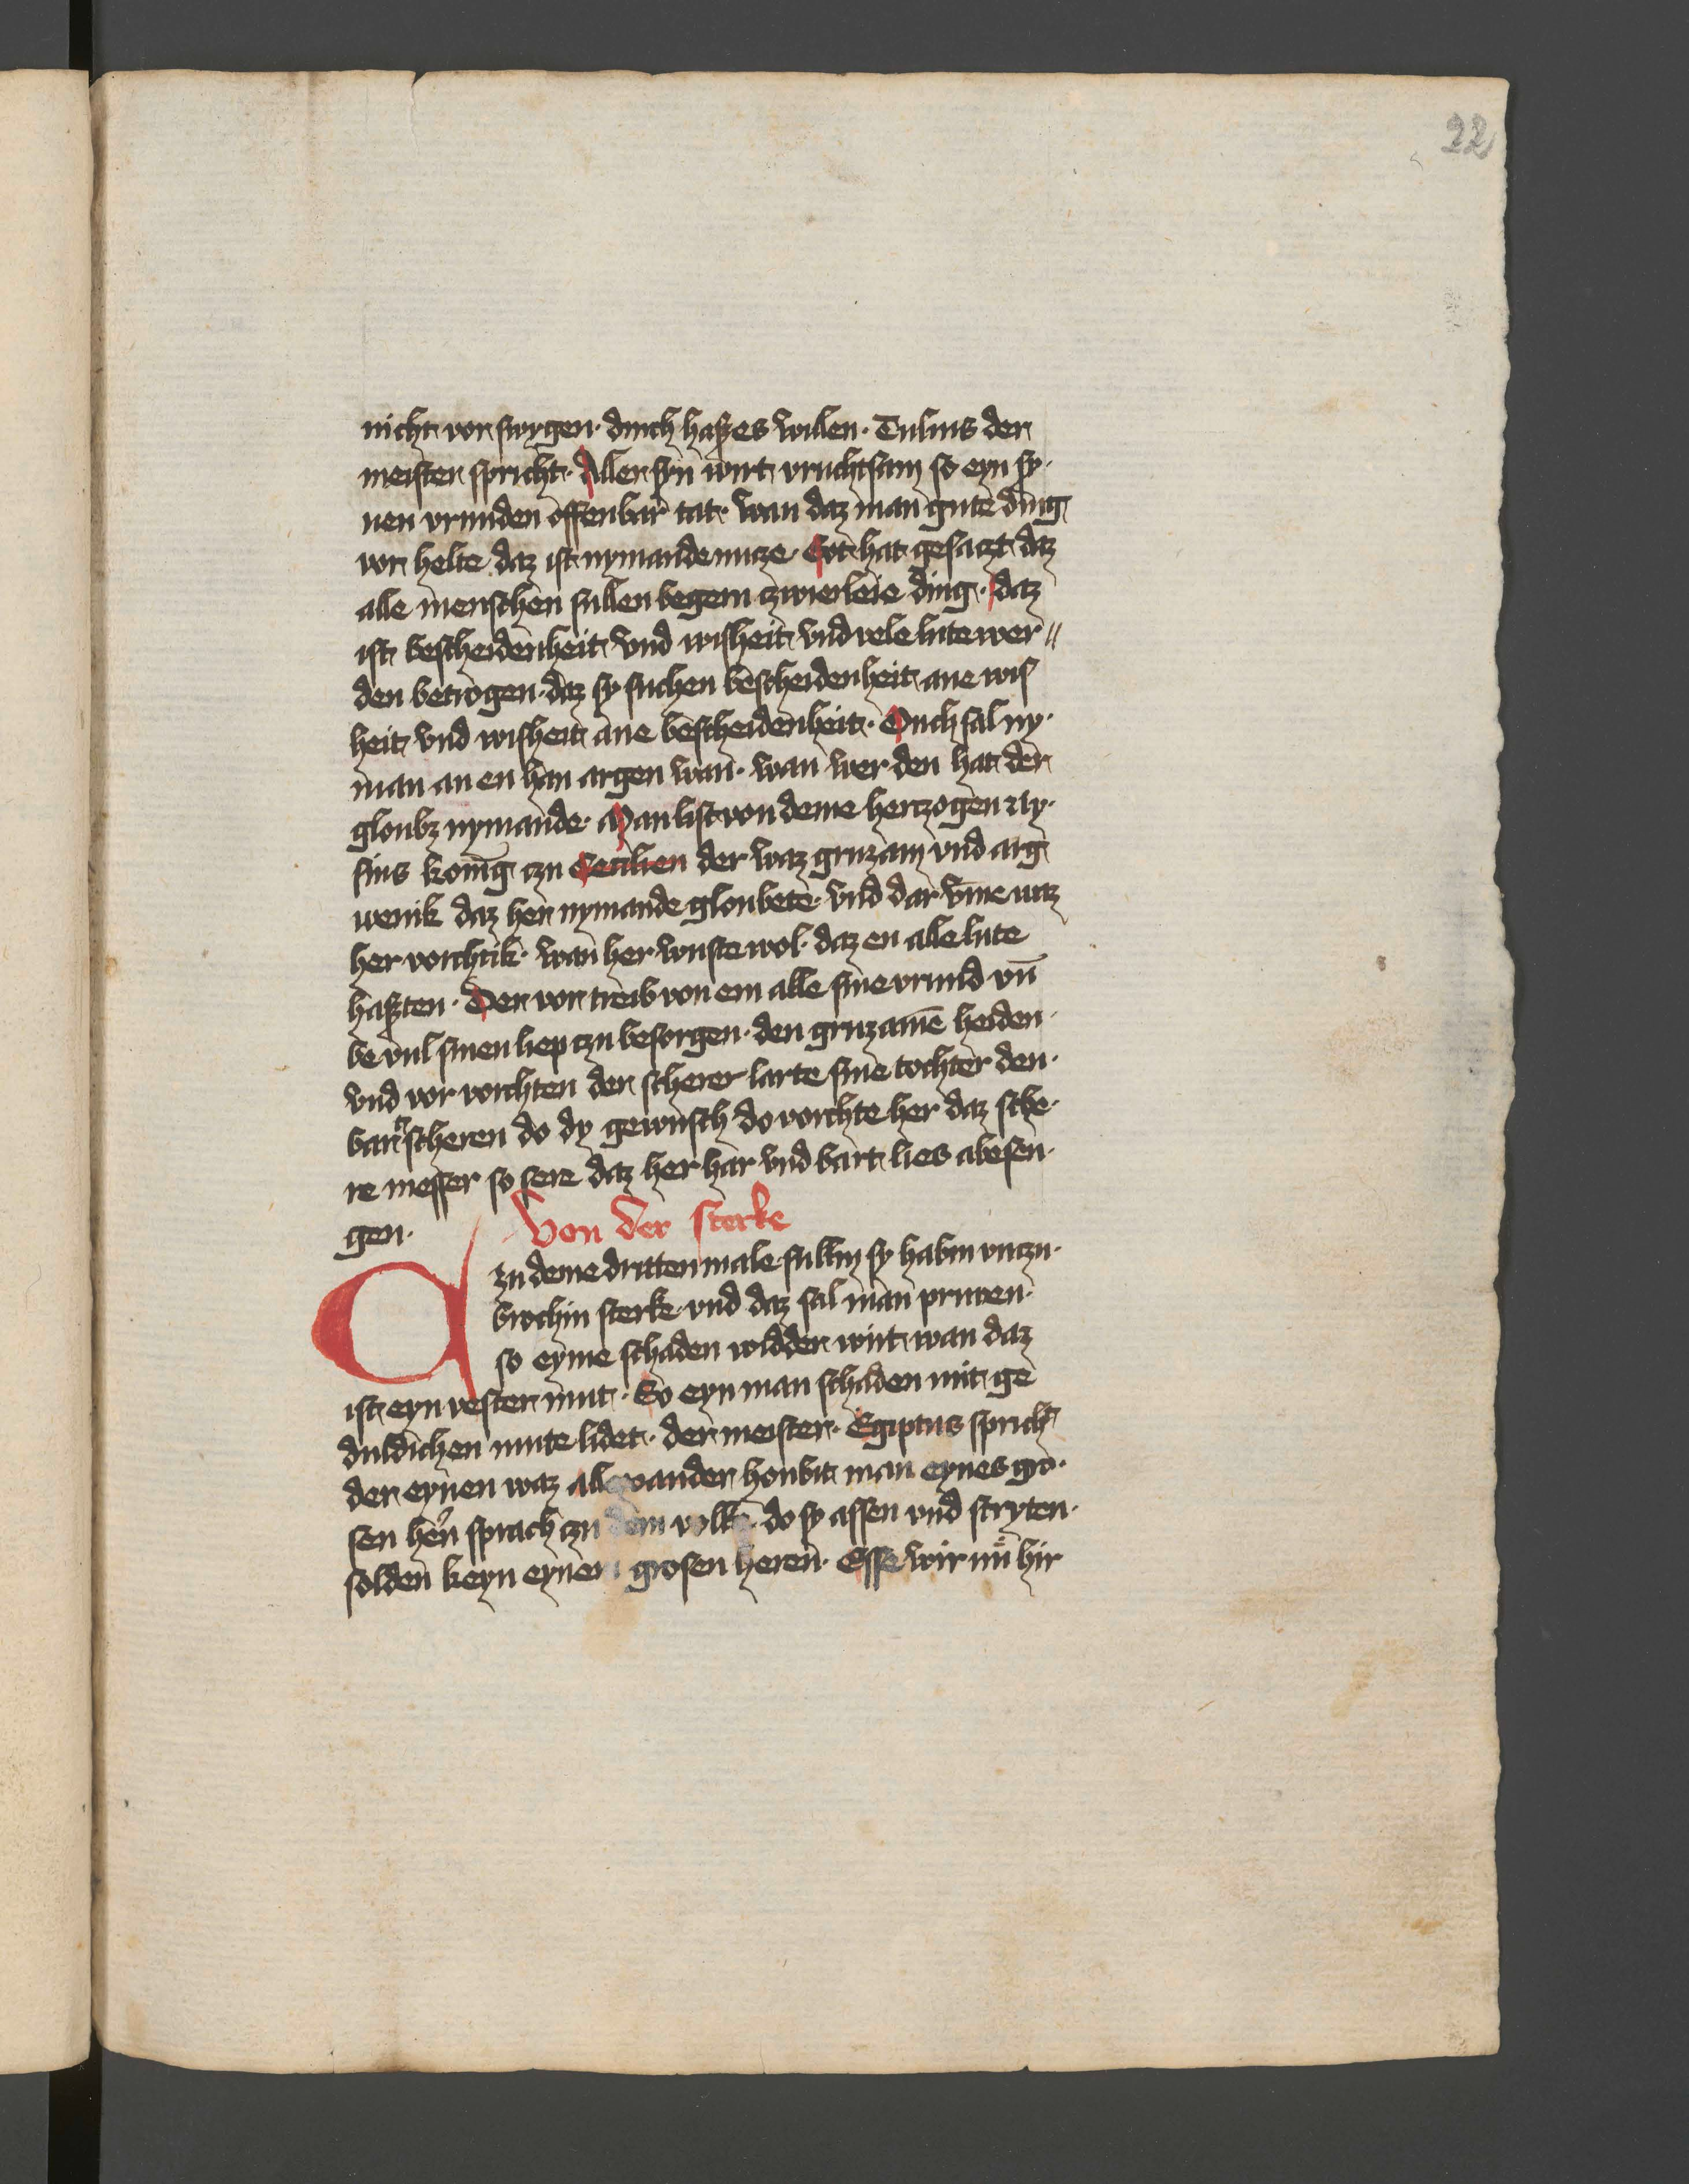 22
nicht vor swygen · durch haßes willen · Tulius der
meister spricht · Aller syn wirt vruchtsam so eyn sy·
nen vrunden offenbar tat · wan daz man gute ding
vor helte daz ist nymande nucze · Got hat gesaczt daz
alle menschen sullen begern czwierleie ding · daz
ist bescheidenheit vnd wisheit vnd vele lute wer„
den betrogen · daz sy suchen bescheidenheit ane wis
heit vnd wisheit ane bescheidenheit · Ouch sal ny·
man an en han argen wan · wan wer den hat der
gloubz nymande · Man list von deme herczogen
sius konig czu Cecilien der waz gruzam vnd arg
wenik daz her nymande gloubete · vnd dar vme waz
her vorchtik · wan her wuste wol · daz en alle lute
haßten · Der vor treib von em alle sine vrund vn̄
be vul sinen liep czu besorgen · den gruzamē heiden ·
vnd vor vorchten der scherer larte sine tochter den ·
bart scheren do dy gewusch do vorchte her daz sche·
re messer so sere daz her har vnd bart lies abesen·
gen ·
Von der sterke
Czu deme dritten male sullin sy habin vnczu·
brochin sterke · vnd daz sal man pruven ·
so eyme schaden widder wirt wan daz
ist eyn vester mut · So eyn man schaden mit ge
duldichen mute lidet · der meister · Egiptus spricht
der eynen waz allexander houbit man eynes gro·
sen hern sprach czu dem volke do sy assen vnd stryten ·
solden keyn eynen grosen heren · Esse wir nu hir